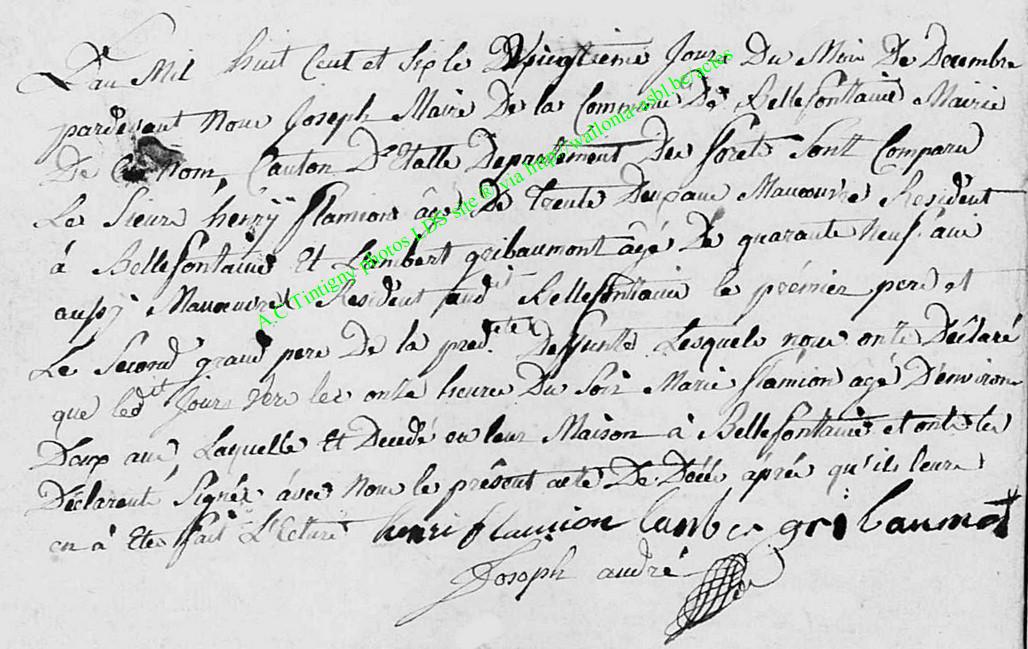 L'an Mil huit Cent et Six le Vingtieme Jour Du Mois De Decembre
pardevant Nous Joseph Maire De la Commune De Bellefontaine Mairie
De Ce Nom, Canton D'Etalle Departement Des forets Sont Comparu
Le Sieure henrÿ flamion âgé De trente Deux ans Manoeuvre Resident
à Bellefontaine Et Lambert gribaumont âgé De quarante Neuf ans
aussy Manoeuvre Resident aud.it Bellefontaine le premier pere et
Le Second grand pere De la pred.ite Deffunte Lesquels nous onts Déclaré
que led.it Jour vers les onze heure Du Soir Marie flamion agé D'environ
Deux ans, Laquelle Et Decedé en leur Maison à Bellefontaine et onts les
Déclarant Signés avec Nous le présent acte De Décès aprés qu'ils leure
en à Etés fait L'Ecture henri flamion lambe gribaumot
Joseph andré
A.C Tintigny photos LDS site @ via http://wallonia-asbl.be/actes